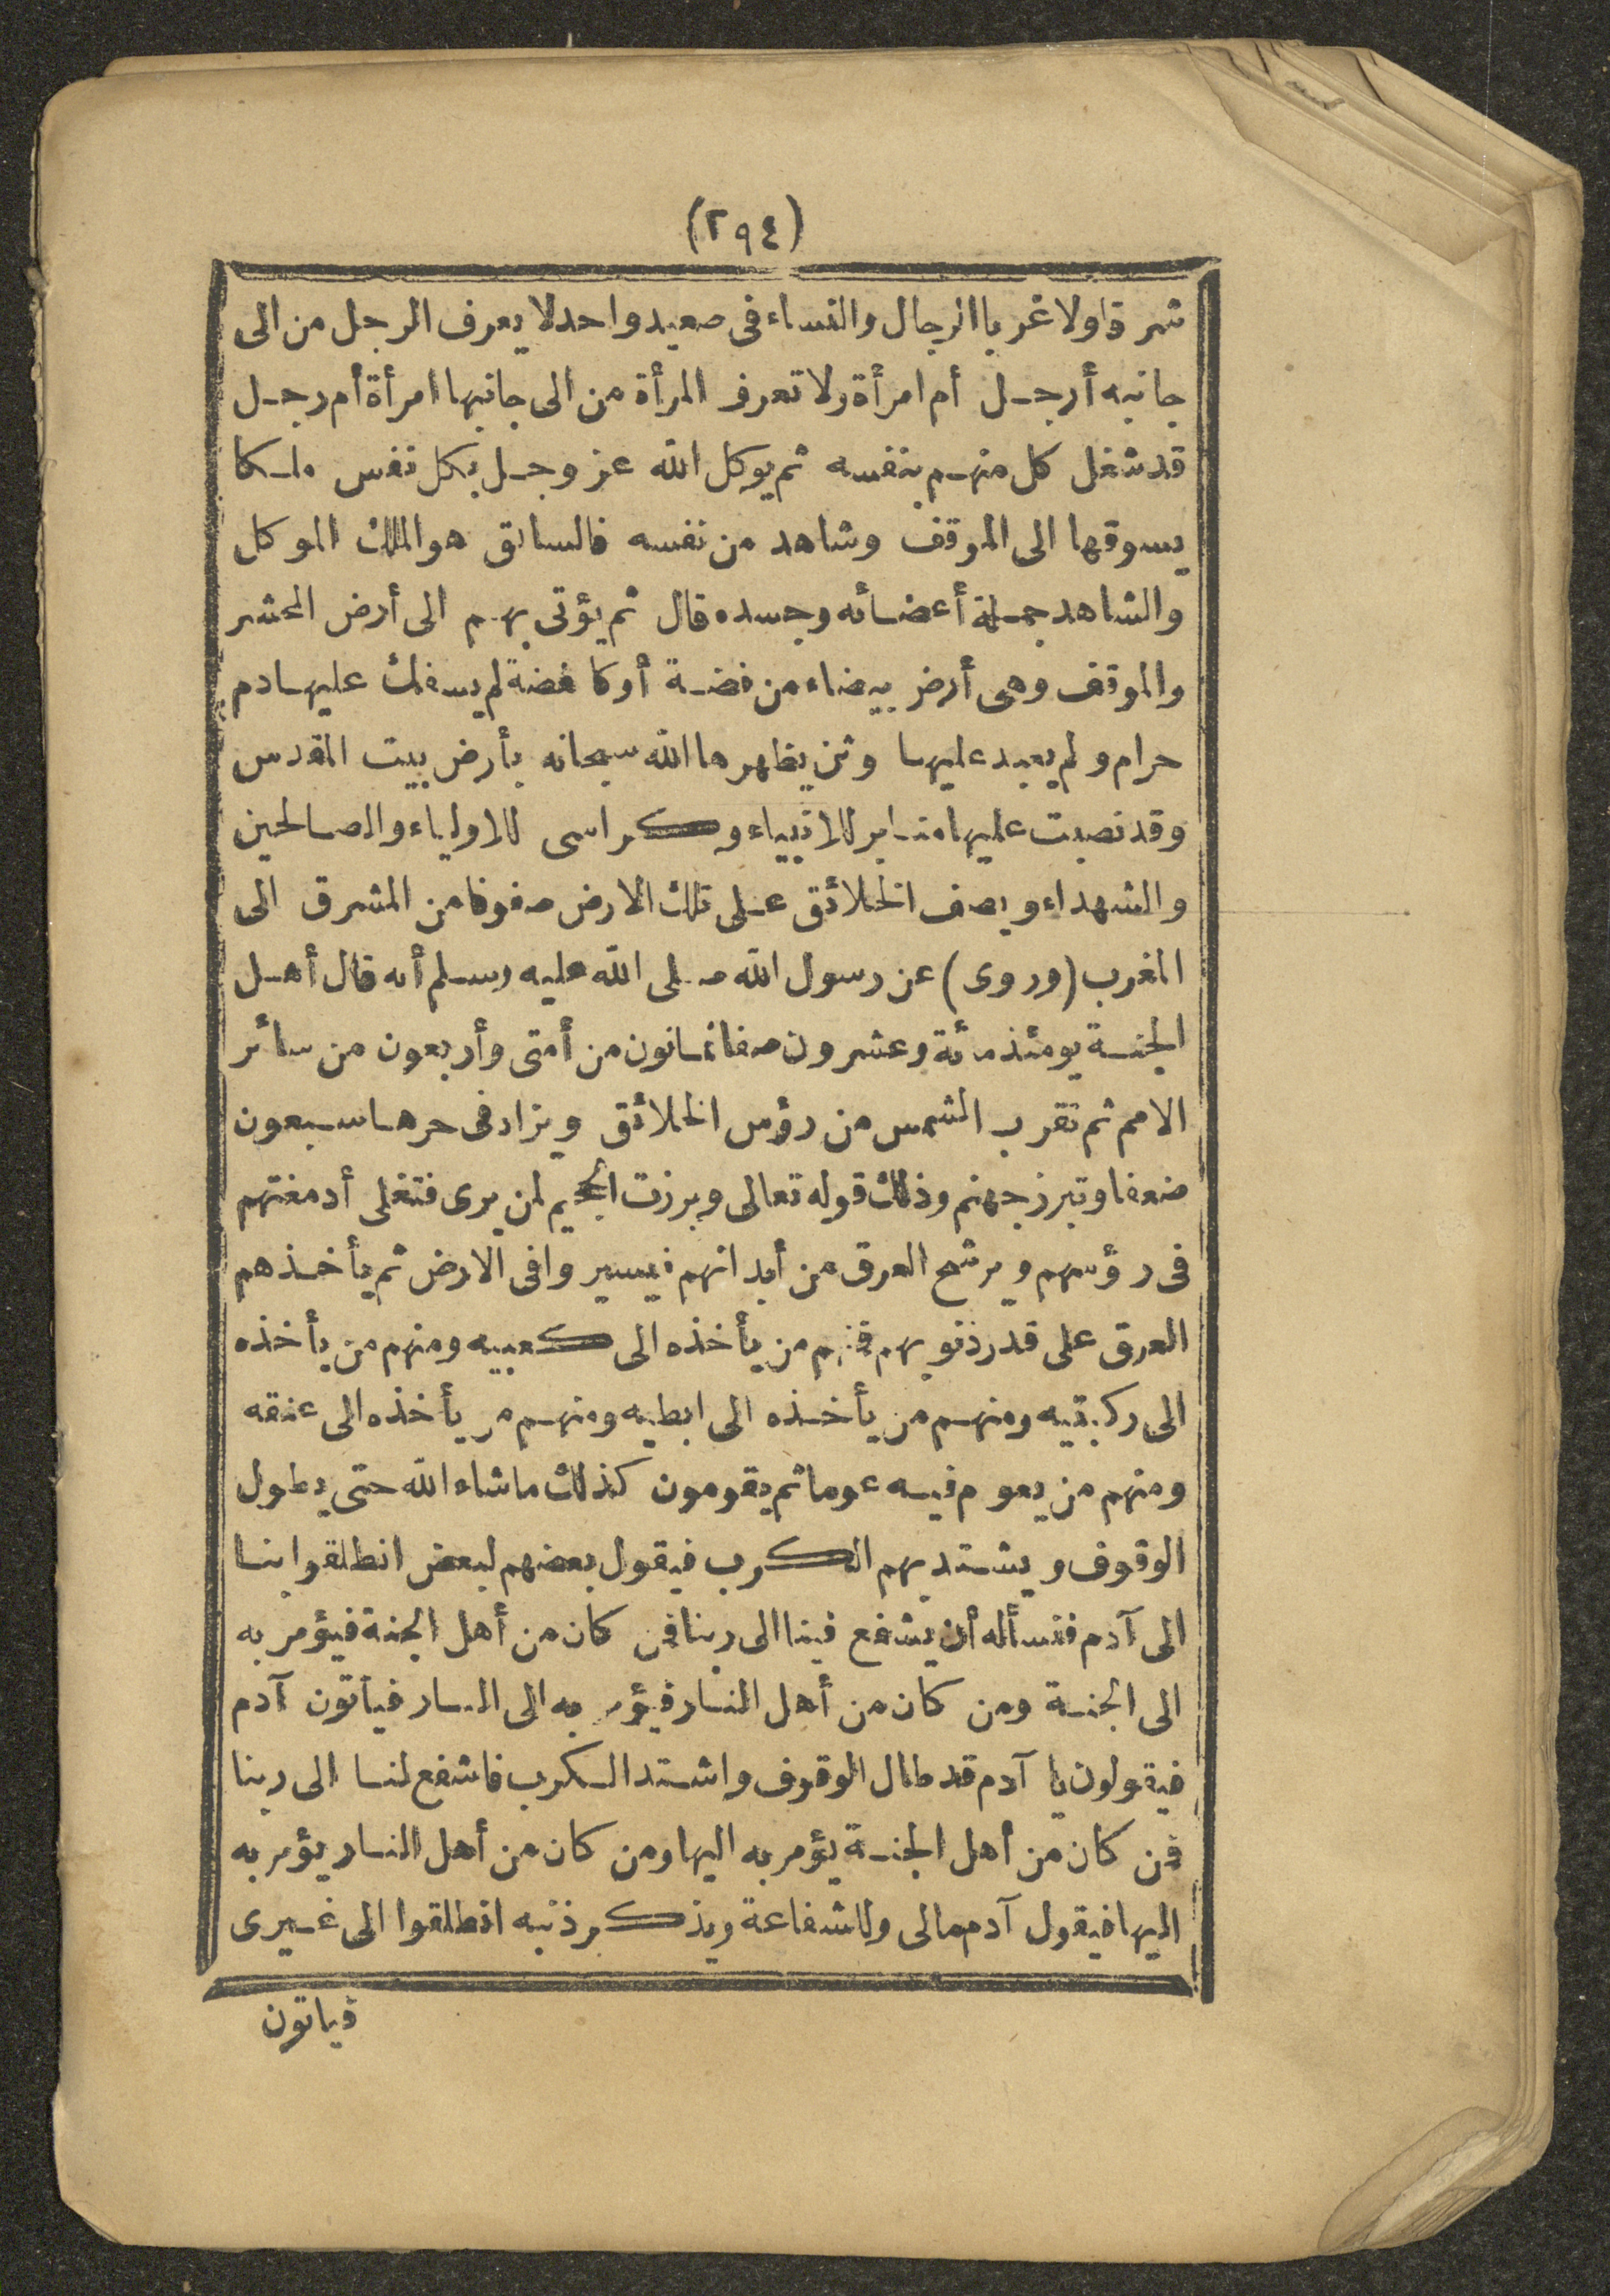 (٢٩٤)
شرقا ولا غربا الرجال والنساء فى صعيد واحد لا يعرف الرجل من الى
جانبه أرجل أم امرأة ولا تعرف المرأة من الى جانبها امرأة أم رجل
قد شغل كل منهم بنفسه ثم يوكل الله عز وجل بكل نفس ملكا
يسوقها الى الموقف وشاهد من نفسه فالسائق هو الملك الموكل
والشاهد جملة أعضائه وجسده قال ثم يؤتى بهم الى أرض المحشر
والموقف وهى أرض بيضاء من فضة أو كا فضة لم يسفك عليها دم
حرام ولم يعبد عليها وثن يظهرها الله سبحانه بأرض بيت المقدس
وقد نصبت عليها منابر للانبياء وكراسى للاولياء والصالحين
والشهداء ويصف الخلائق على تلك الارض صفوفا من المشرق الى
المغرب (وروى) عن رسول الله صلى الله عليه وسلم أنه قال أهل
الجنة يومئذ مائة وعشرون صفا ثمانون من أمتى وأربعون من سائر
الامم ثم تقرب الشمس من رؤس الخلائق ويزاد فى حرها سبعون
ضعفا وتبرز جهنم وذلك قوله تعالى وبرزت الجحيم لمن يرى فتغلى أدمغتهم
فى رؤسهم ويرشح العرق من أبدانهم فيسير وافى الارض ثم يأخذهم
العرق على قدر ذنوبهم فمنهم من يأخذه الى كعبيه ومنهم من يأخذه
الى ركبتيه ومنهم من يأخذه الى ابطيه ومنهم من يأخذه الى عنقه
ومنهم من يعوم فيه عوما ثم يقومون كذلك ما شاء الله حتى يطول
الوقوف ويشتد بهم الكرب فيقول بعضهم لبعض انطلقوا بنا
الى آدم فنسأله أن يشفع فينا الى ربنا فمن كان من أهل الجنة فيؤمر به
الى الجنة ومن كان من أهل النار فيؤمر به الى النار فيأتون آدم
فيقولون يا آدم قد طال الوقوف واشتد الكرب فاشفع لنا الى ربنا
فمن كان من أهل الجنة يؤمر به اليها ومن كان من أهل النار يؤمر به
اليها فيقول آدم مالى وللشفاعة ويذكر ذنبه انطلقوا الى غيرى
فياتون